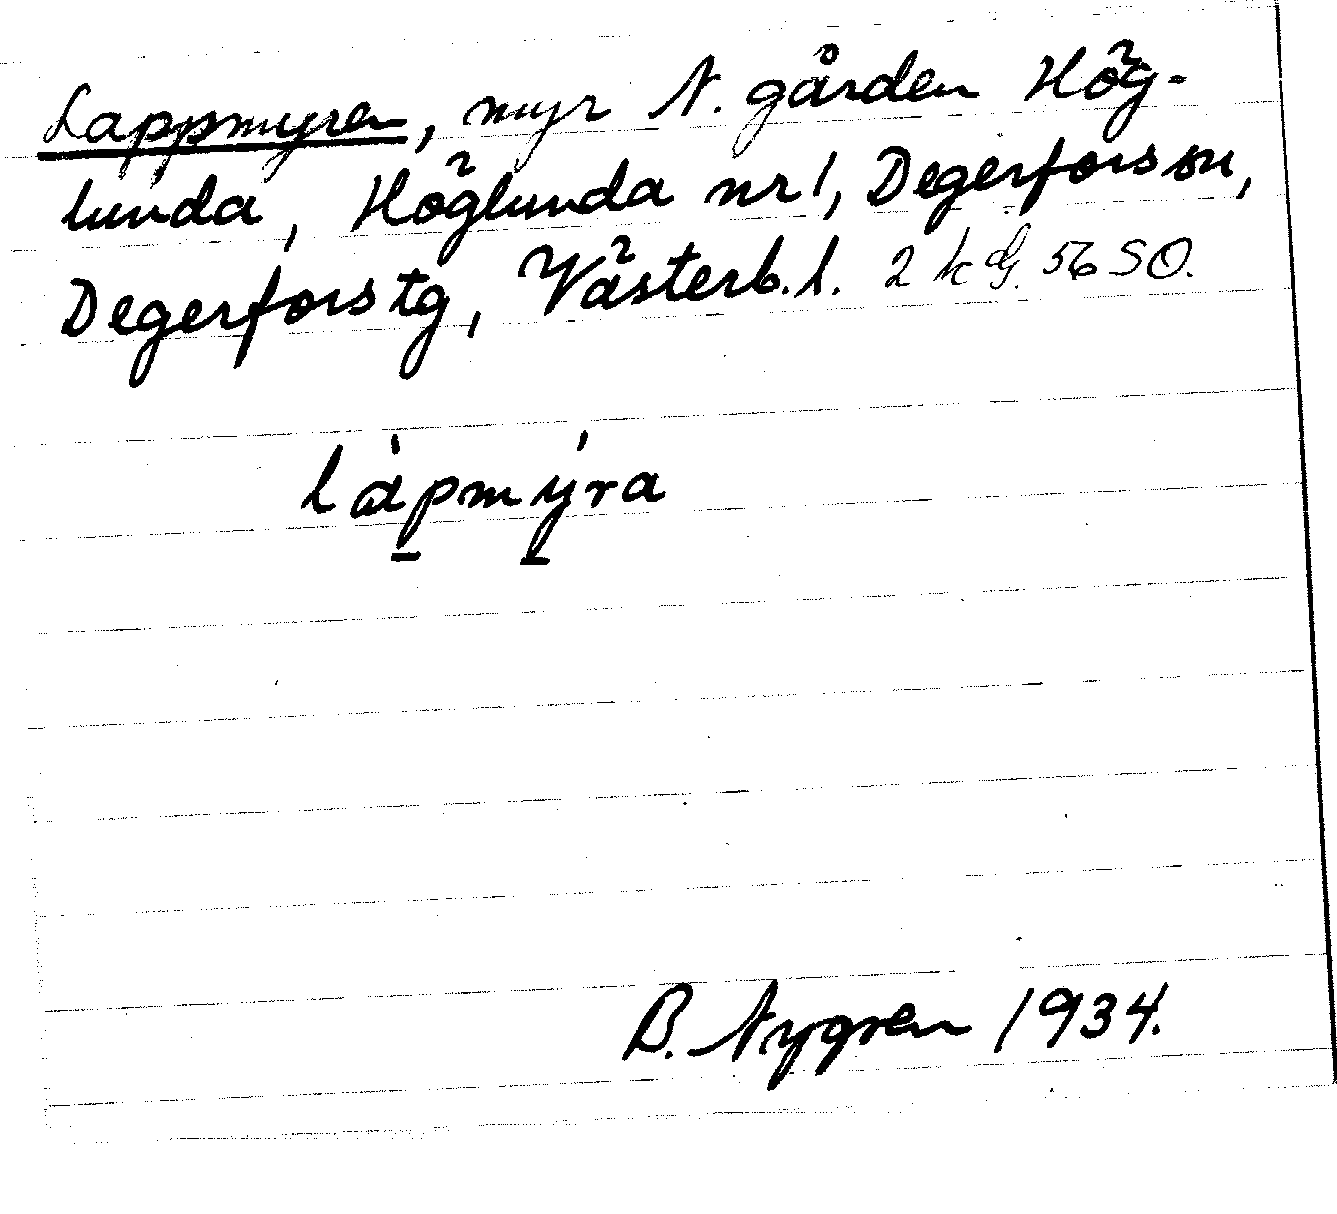 Lappmyren, myr N. gården Hög-
lunda, Höglunda nr 1, Degerfors sn,
Degerfors tg, Västerb. l. 2 kg. 56 SO.
lápmýra
B. Nygren 1934.